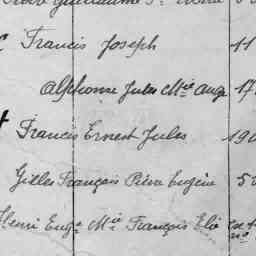 Guillaume
Francis Joseph 11
Alphonse Jules Mie Ange 17
Francis Ernest Jules 190
Gilles François Pierre Eugène 5
Henri Eug. Mie François Elie